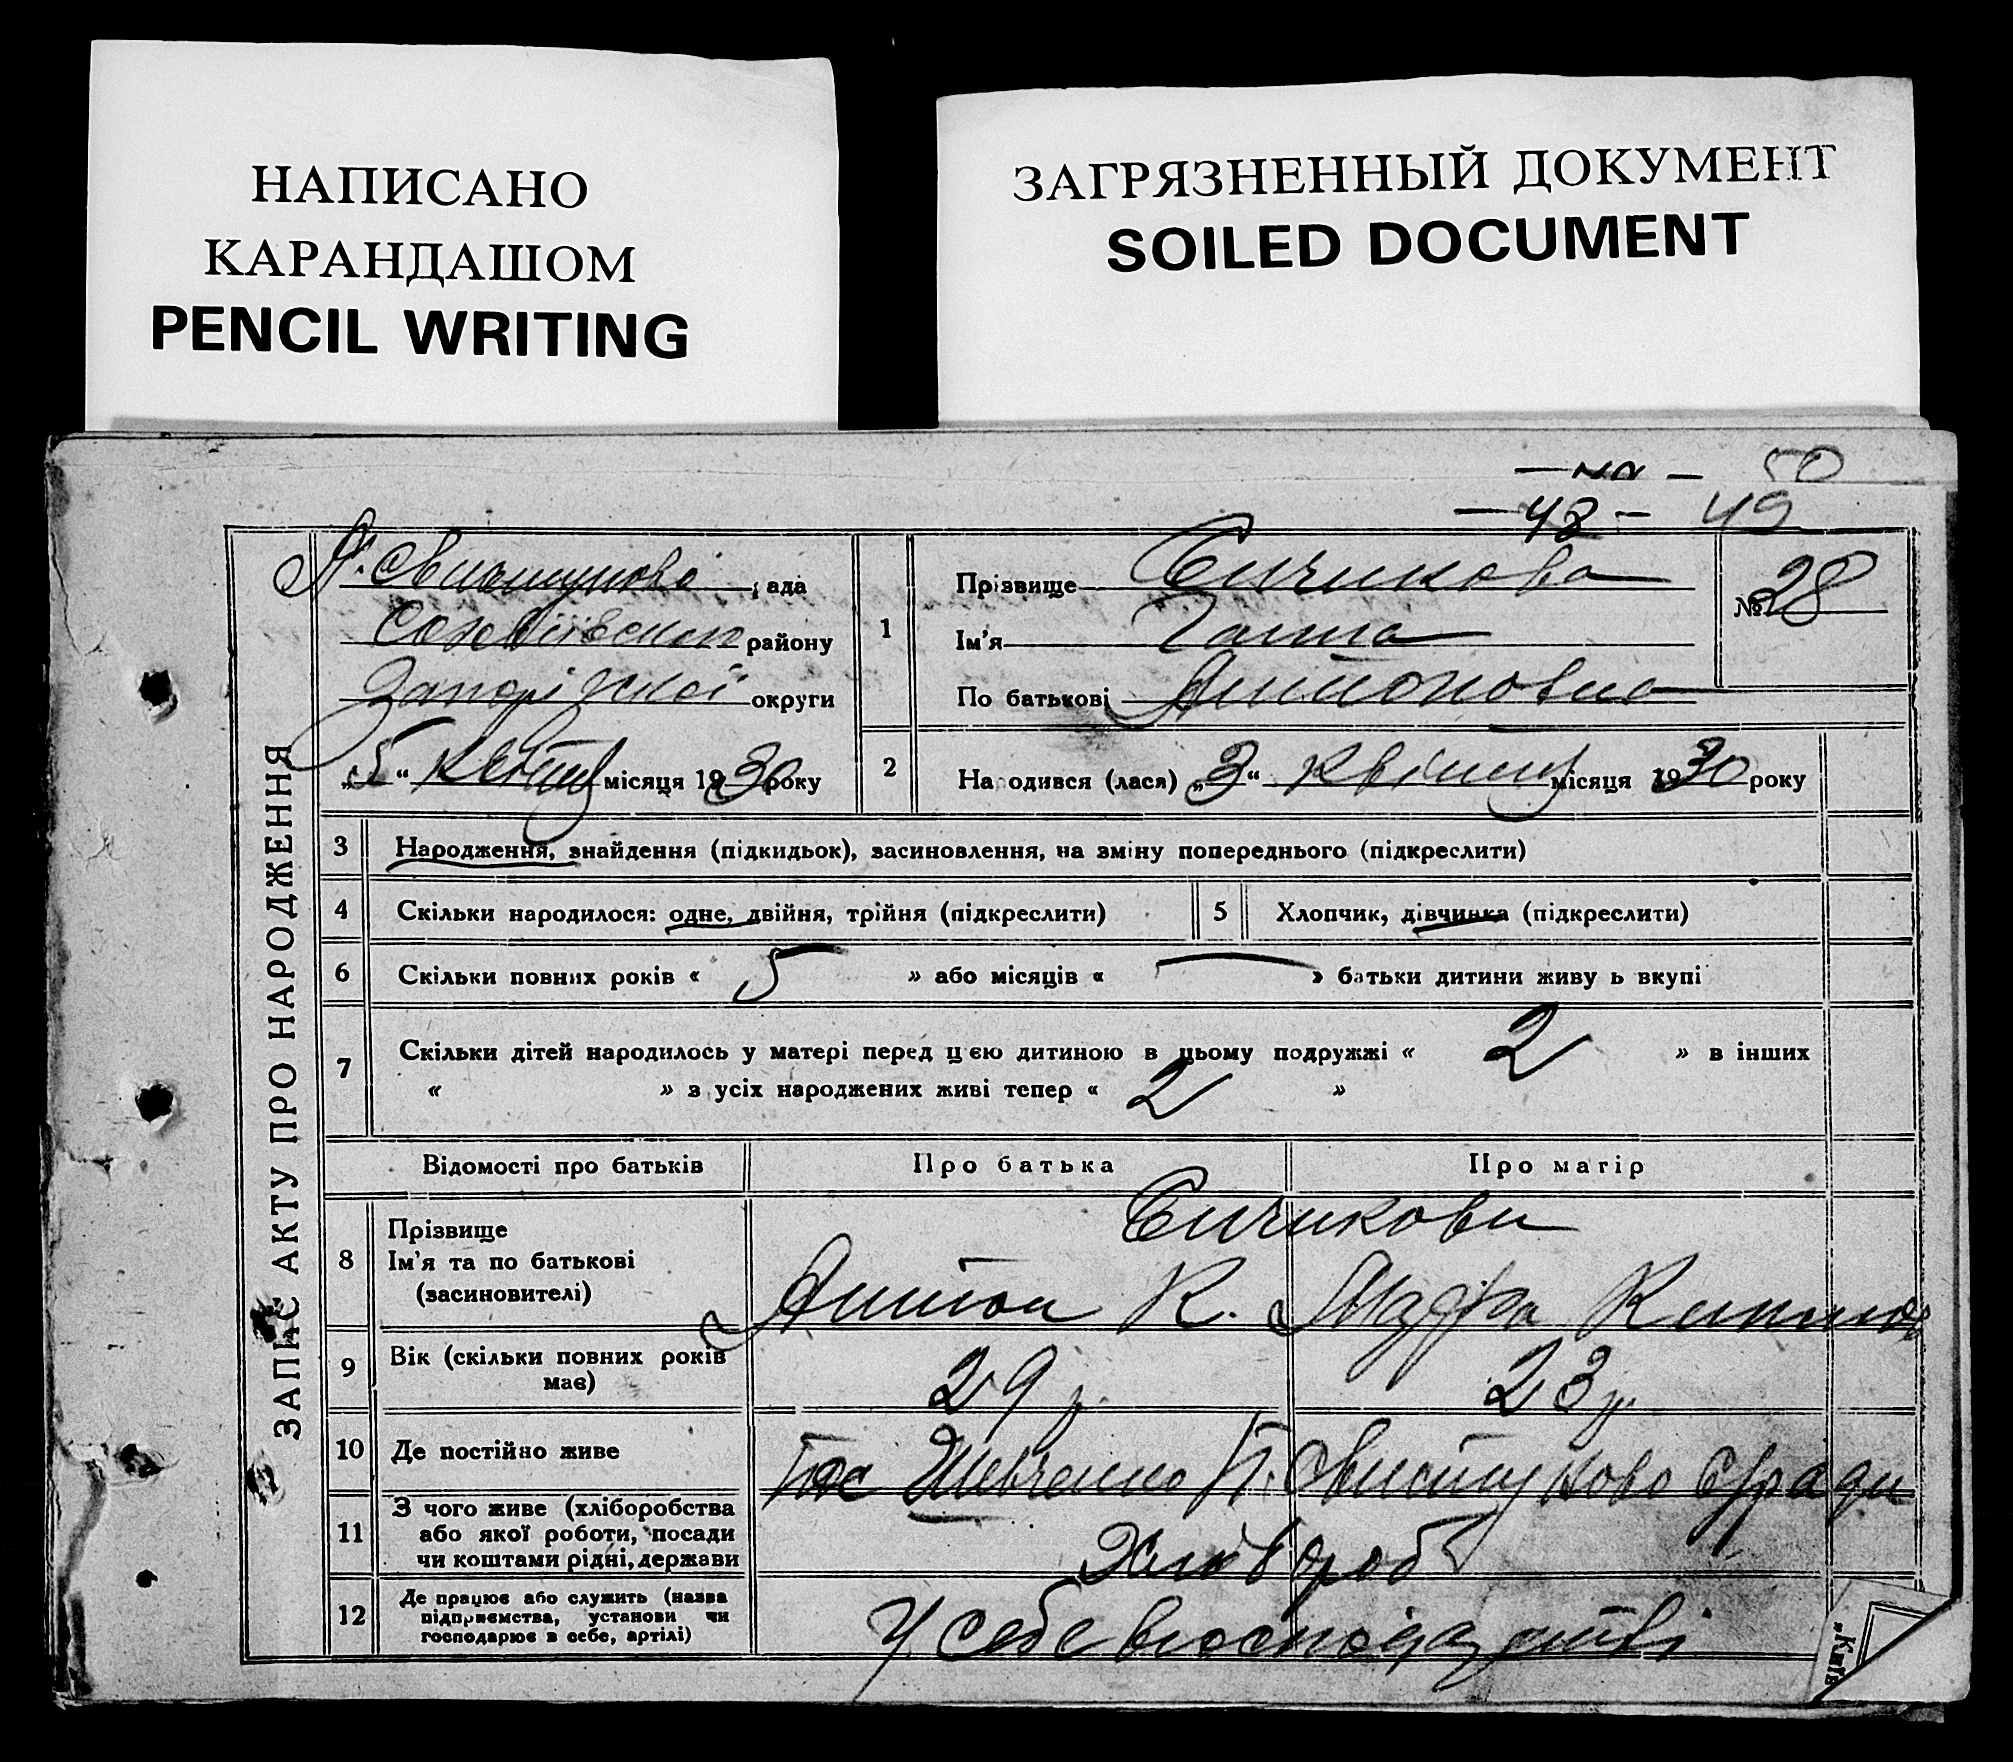 НАПИСАНО
КАРАНДАШОМ
PENCIL WRITING
ЗАГРЯЗНЕННЫЙ ДОКУМЕНТ
SOILED DOCUMENT
— на — 50
— 48 — 49
ЗАПИС АКТУ ПРО НАРОДЖЕННЯ
Н. Свистуново ; ада
Софіївсько району
Запоріжкої округи
„5“ Квітня місяця 1930 року
1
Прізвище Бичикова
Ім'я Ганна
По батькові Антоновна
№ 28
2 На одився (лася) „3“ Квітня місяця 1930 року
3 Народження, знайдення (підкидьок), засиновлення, на зміну попереднього (підкреслити)
4 Скільки народилося: одне, двійня, трійня (підкреслити) 5 Хлопчик, дівчинка (підкреслити)
6 Скільки повних років « 5 » або місяців « — » батьки дитини живу ь вкупі
7 Скільки дітей народилось у матері перед цією дитиною в цьому подружжі « 2 » в інших
« » з усіх народжених живі тепер « 2 »
Відомості про батьків Про батька Про матір
8 Прізвище Бичикови
Ім'я та по батькові
(засиновителі) Антон К. Марфа
9 Вік (скільки повних років
має) 29 р. 23 р.
10 Де постійно живе Шевченко Н. Свистуново с/ради
11 З чого живе (хліборобства
або якої роботи, посади
чи коштами рідні, держави Хлібороб
12 Де працює або служить (назва
підприємства, установи чи
господарює в себе, артілі) У себе в господарстві
„Київ